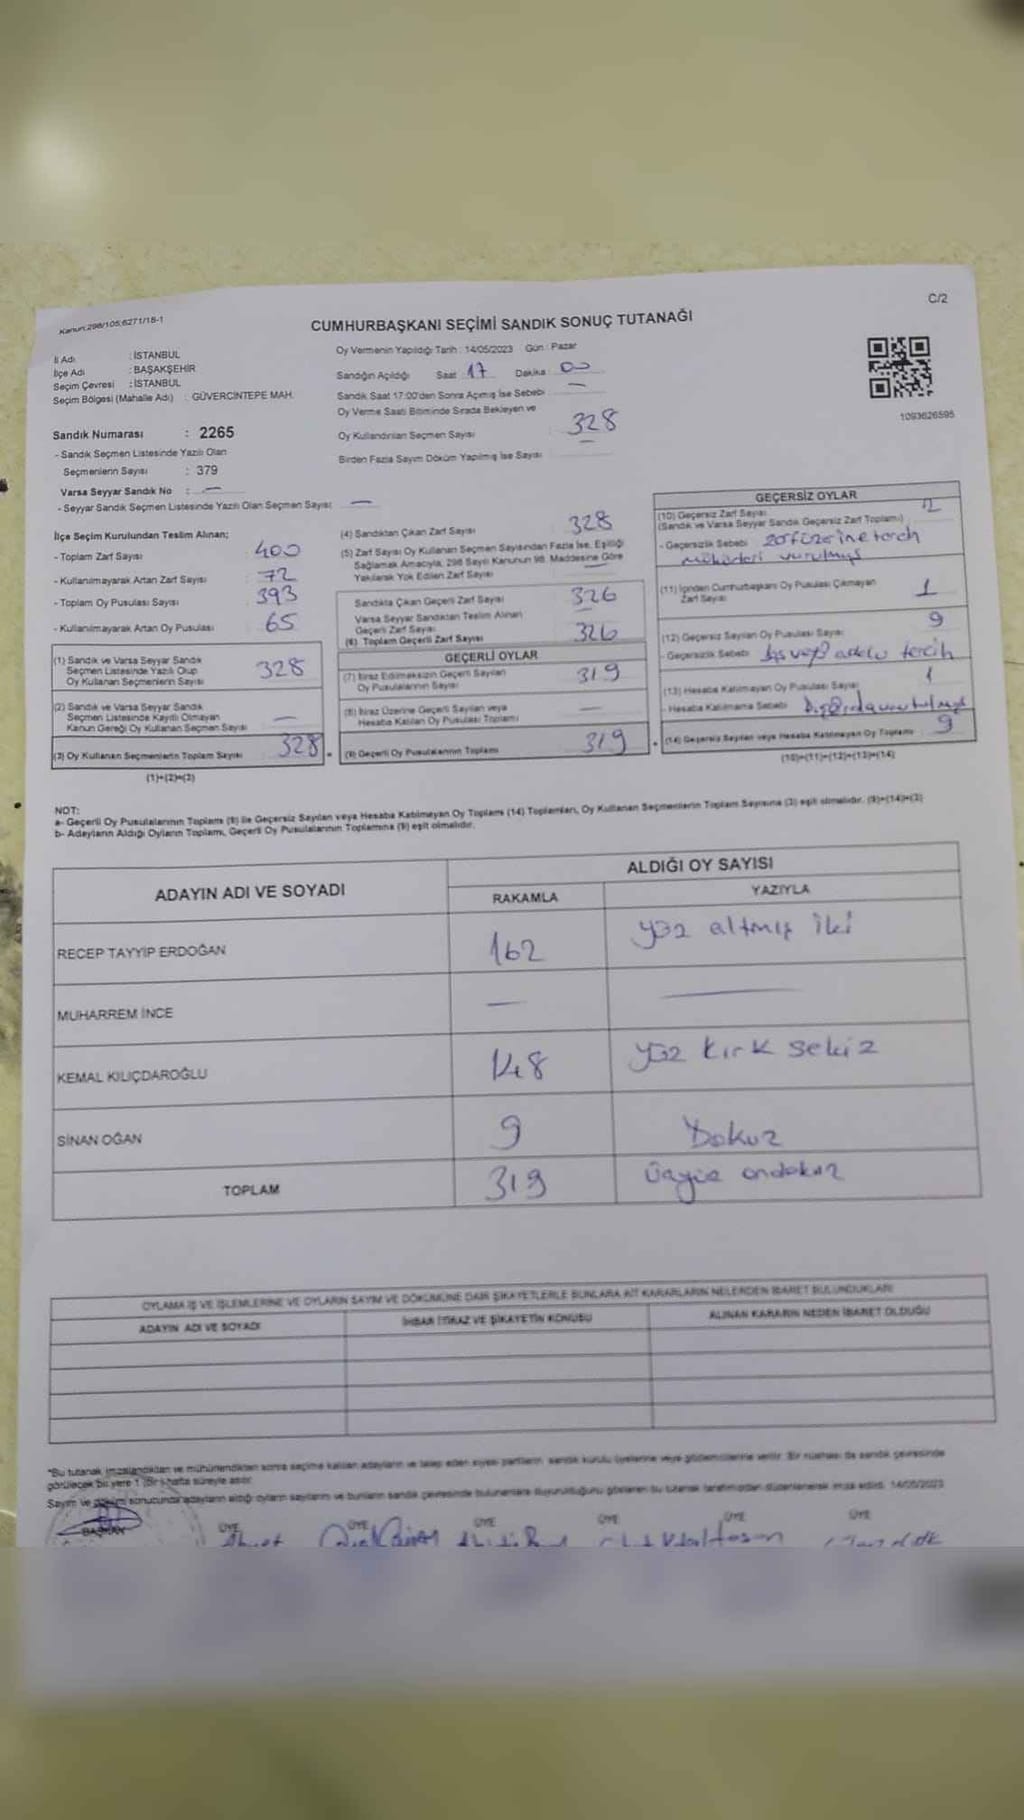 Kanun;298/105;6271/18-1
C/2
CUMHURBAŞKANI SEÇİMİ SANDIK SONUÇ TUTANAĞI
İl Adı : İSTANBUL
İlçe Adı : BAŞAKŞEHİR
Seçim Çevresi : İSTANBUL
Seçim Bölgesi (Mahalle Adı) : GÜVERCİNTEPE MAH.
Sandık Numarası : 2265
- Sandık Seçmen Listesinde Yazılı Olan
Seçmenlerin Sayısı : 379
Varsa Seyyar Sandık No : —
- Seyyar Sandık Seçmen Listesinde Yazılı Olan Seçmen Sayısı: —
Oy Vermenin Yapıldığı Tarih : 14/05/2023 Gün : Pazar
Sandığın Açıldığı Saat 17 Dakika 00
Sandık Saat 17:00'den Sonra Açımış İse Sebebi —
Oy Verme Saati Bitiminde Sırada Bekleyen ve
Oy Kullandırılan Seçmen Sayısı 328
Birden Fazla Sayım Döküm Yapılmış İse Sayısı
1093626595
İlçe Seçim Kurulundan Teslim Alınan;
- Toplam Zarf Sayısı 400
- Kullanılmayarak Artan Zarf Sayısı 72
- Toplam Oy Pusulası Sayısı 393
- Kullanılmayarak Artan Oy Pusulası 65
(1) Sandık ve Varsa Seyyar Sandık
Seçmen Listesinde Yazılı Olup
Oy Kullanan Seçmenlerin Sayısı 328
(2) Sandık ve Varsa Seyyar Sandık
Seçmen Listesinde Kayıtlı Olmayan
Kanun Gereği Oy Kullanan Seçmen Sayısı —
(3) Oy Kullanan Seçmenlerin Toplam Sayısı 328
(1)+(2)=(3)
(4) Sandıktan Çıkan Zarf Sayısı 328
(5) Zarf Sayısı Oy Kullanan Seçmen Sayısından Fazla İse, Eşitliği
Sağlamak Amacıyla, 298 Sayılı Kanunun 98. Maddesine Göre
Yakılarak Yok Edilen Zarf Sayısı —
Sandıkta Çıkan Geçerli Zarf Sayısı 326
Varsa Seyyar Sandıktan Teslim Alınan
Geçerli Zarf Sayısı
(6) Toplam Geçerli Zarf Sayısı 326
GEÇERLİ OYLAR
(7) İtiraz Edilmeksizin Geçerli Sayılan
Oy Pusulalarının Sayısı 319
(8) İtiraz Üzerine Geçerli Sayılan veya
Hesaba Katılan Oy Pusulası Toplamı —
(9) Geçerli Oy Pusulalarının Toplamı 319
GEÇERSİZ OYLAR
(10) Geçersiz Zarf Sayısı 2
(Sandık ve Varsa Seyyar Sandık Geçersiz Zarf Toplamı)
- Geçersizlik Sebebi zarf üzerine tercih
mühürleri vurulmuş
(11) İçinden Cumhurbaşkanı Oy Pusulası Çıkmayan
Zarf Sayısı 1
(12) Geçersiz Sayılan Oy Pusulası Sayısı 9
- Geçersizlik Sebebi tercih
(13) Hesaba Katılmayan Oy Pusulası Sayısı 1
- Hesaba Katılmama Sebebi
(14) Geçersiz Sayılan veya Hesaba Katılmayan Oy Toplamı 9
(10)+(11)+(12)+(13)=(14)
NOT:
a- Geçerli Oy Pusulalarının Toplamı (9) ile Geçersiz Sayılan veya Hesaba Katılmayan Oy Toplamı (14) Toplamları, Oy Kullanan Seçmenlerin Toplam Sayısına (3) eşit olmalıdır. (9)+(14)=(3)
b- Adayların Aldığı Oyların Toplamı, Geçerli Oy Pusulalarının Toplamına (9) eşit olmalıdır.
ADAYIN ADI VE SOYADI
ALDIĞI OY SAYISI
RAKAMLA YAZIYLA
RECEP TAYYİP ERDOĞAN 162 yüz altmış iki
MUHARREM İNCE — —
KEMAL KILIÇDAROĞLU 148 yüz kırk sekiz
SİNAN OĞAN 9 Dokuz
TOPLAM 319 üçyüz ondokuz
OYLAMA İŞ VE İŞLEMLERİNE VE OYLARIN SAYIM VE DÖKÜMÜNE DAİR ŞİKAYETLERLE BUNLARA AİT KARARLARIN NELERDEN İBARET BULUNDUKLARI
ADAYIN ADI VE SOYADI İHBAR İTİRAZ VE ŞİKAYETİN KONUSU ALINAN KARARIN NEDEN İBARET OLDUĞU
*Bu tutanak imzalandıktan ve mühürlendikten sonra seçime katılan adayların ve talep eden siyasi partilerin sandık kurulu üyelerine veya gözlemcilerine verilir. Bir nüshası da sandık çevresinde
görülecek bir yere 1 (Bir) hafta süreyle asılır.
Sayım ve döküm sonucunda adayların aldığı oyların sayılarını ve bunların sandık çevresinde bulunanlara duyurulduğunu gösteren bu tutanak tarafımızdan düzenlenerek imza edildi. 14/05/2023
BAŞKAN ÜYE ÜYE ÜYE ÜYE ÜYE ÜYE